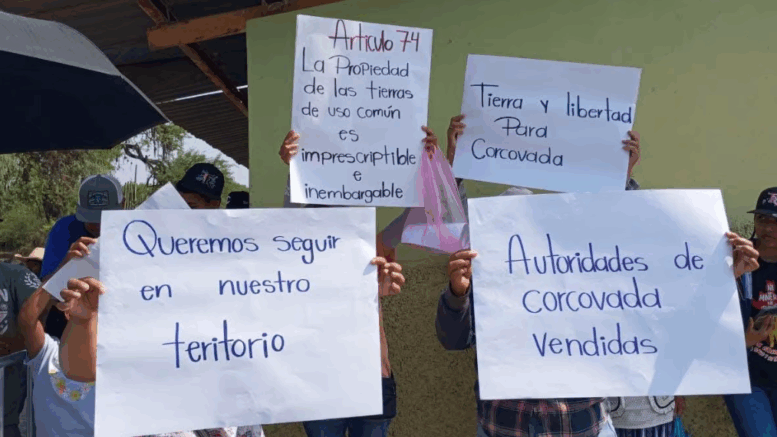 Artículo 74
La Propiedad
de las tierras
de uso común
es
imprescriptible
e
inembargable
Tierra y libertad
Para
Corcovada
Queremos seguir
en nuestro
territorio
Autoridades de
corcovada
vendidas